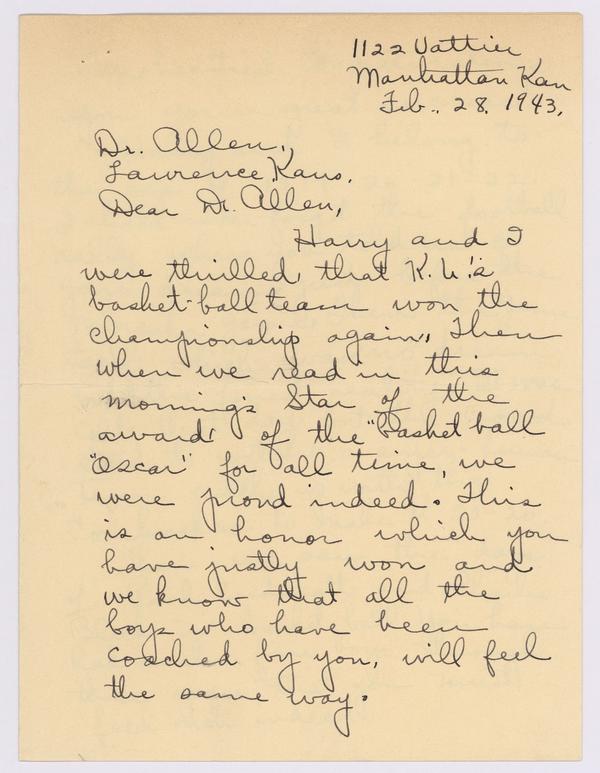 1122 Vattier
Manhattan Kan
Feb. 28, 1943,
Dr. Allen,
Lawrence, Kans.
Dear Dr. Allen,
Harry and I
were thrilled that K.U.'s
basket-ball team won the
championship again. Then
when we read in this
morning's Star of the
award of the "basket ball
"Oscar" for all time, we
were proud indeed. This
is an honor which you
have justly won and
we know that all the
boys who have been
coached by you, will feel
the same way.